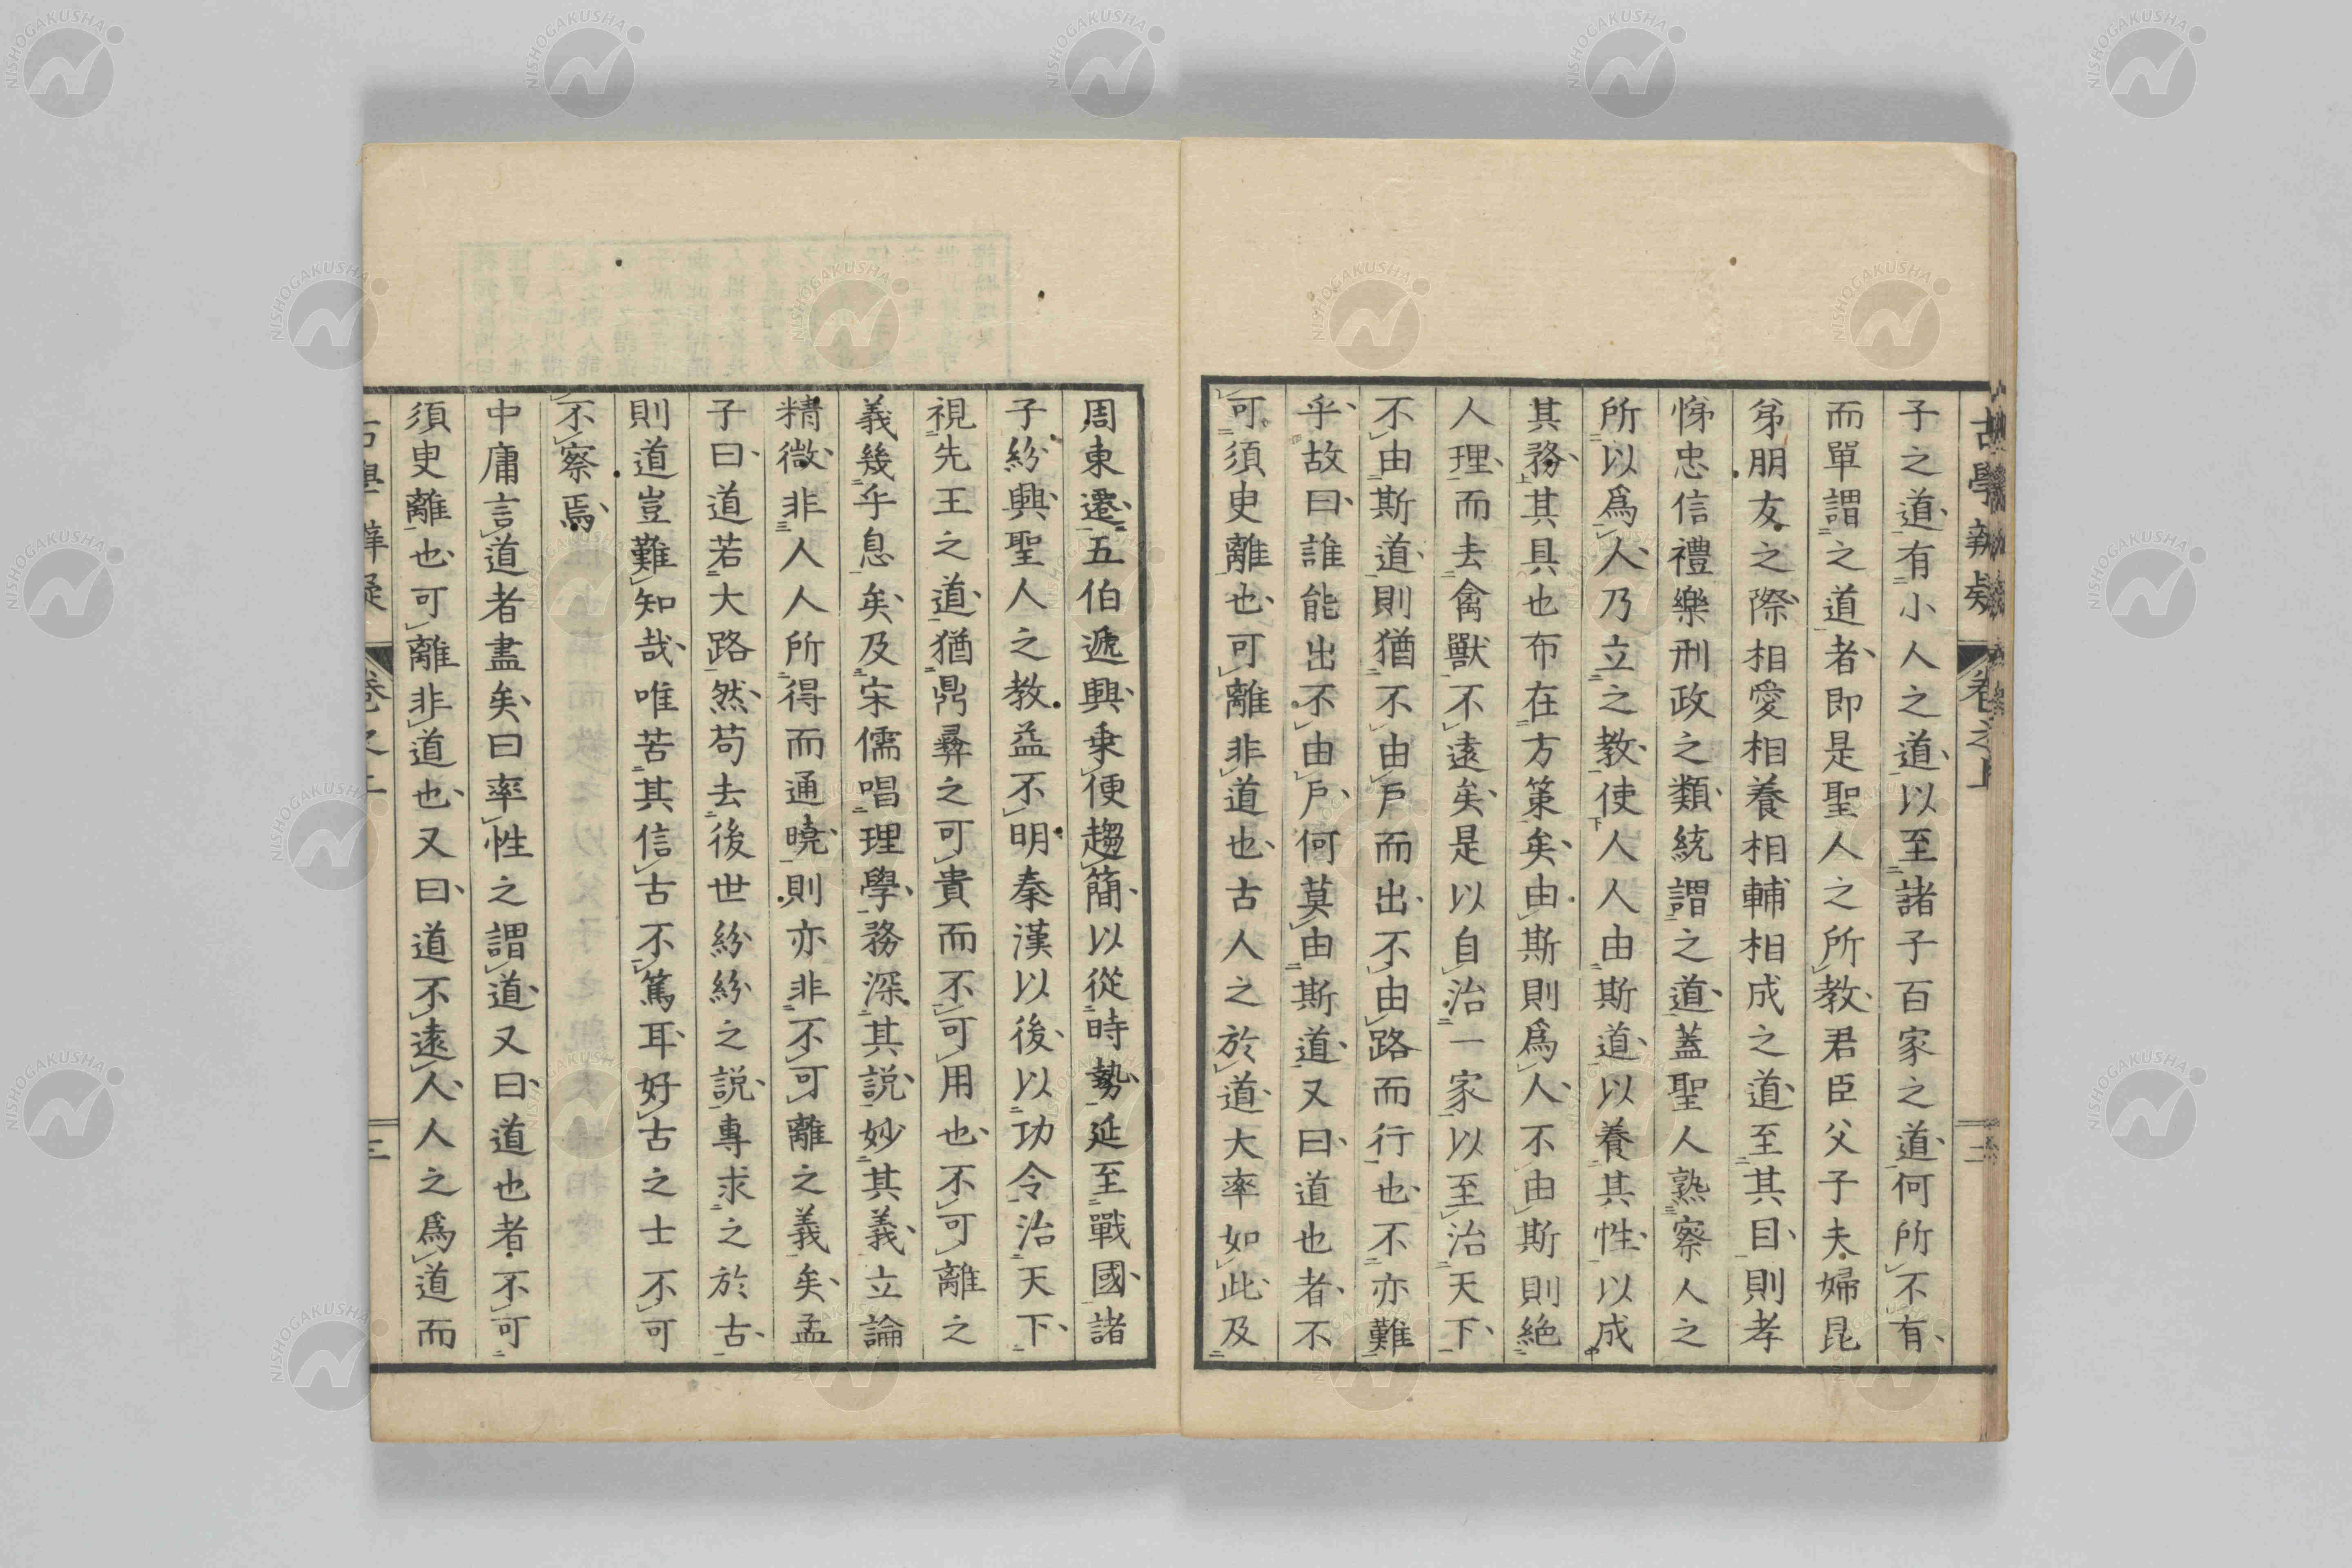 古學辨疑 卷之上 二
子之道有小人之道以至諸子百家之道何所不有
而單謂之道者即是聖人之所教君臣父子夫婦昆
弟朋友之際相愛相養相輔相成之道至其目則孝
悌忠信禮樂刑政之類統謂之道蓋聖人熟察人之
所以爲人乃立之教使人人由斯道以養其性以成
其務其具也布在方策矣由斯則爲人不由斯則絶
人理而去禽獸不遠矣是以自治一家以至治天下
不由斯道則猶不由戶而出不由路而行也不亦難
乎故曰誰能出不由戶何莫由斯道又曰道也者不
可須臾離也可離非道也古人之於道大率如此及
周東遷五伯遞興乗便趨簡以從時勢延至戰國諸
子紛興聖人之教益不明秦漢以後以功令治天下
視先王之道猶鼎彝之可貴而不可用也不可離之
義幾乎息矣及宋儒唱理學務深其説妙其義立論
精微非人人所得而通曉則亦非不可離之義矣孟
子曰道若大路然苟去後世紛紛之説專求之於古
則道豈難知哉唯苦其信古不篤耳好古之士不可
不察焉
中庸言道者盡矣曰率性之謂道又曰道也者不可
須臾離也可離非道也又曰道不遠人人之爲道而
古學辨疑 卷之上 三
NISHOGAKUSHA